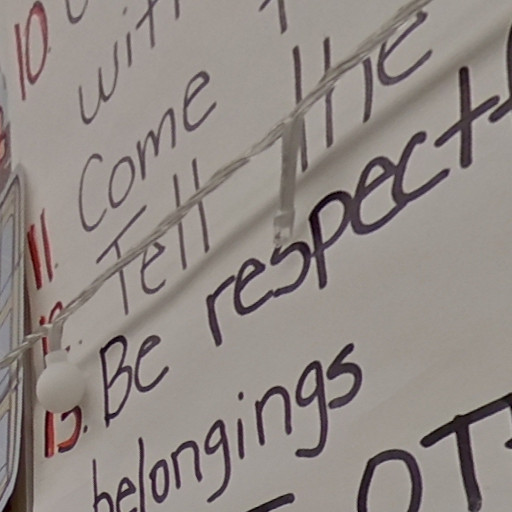 10.
with
11. Come
Tell the
13. Be respect
belongings
OT